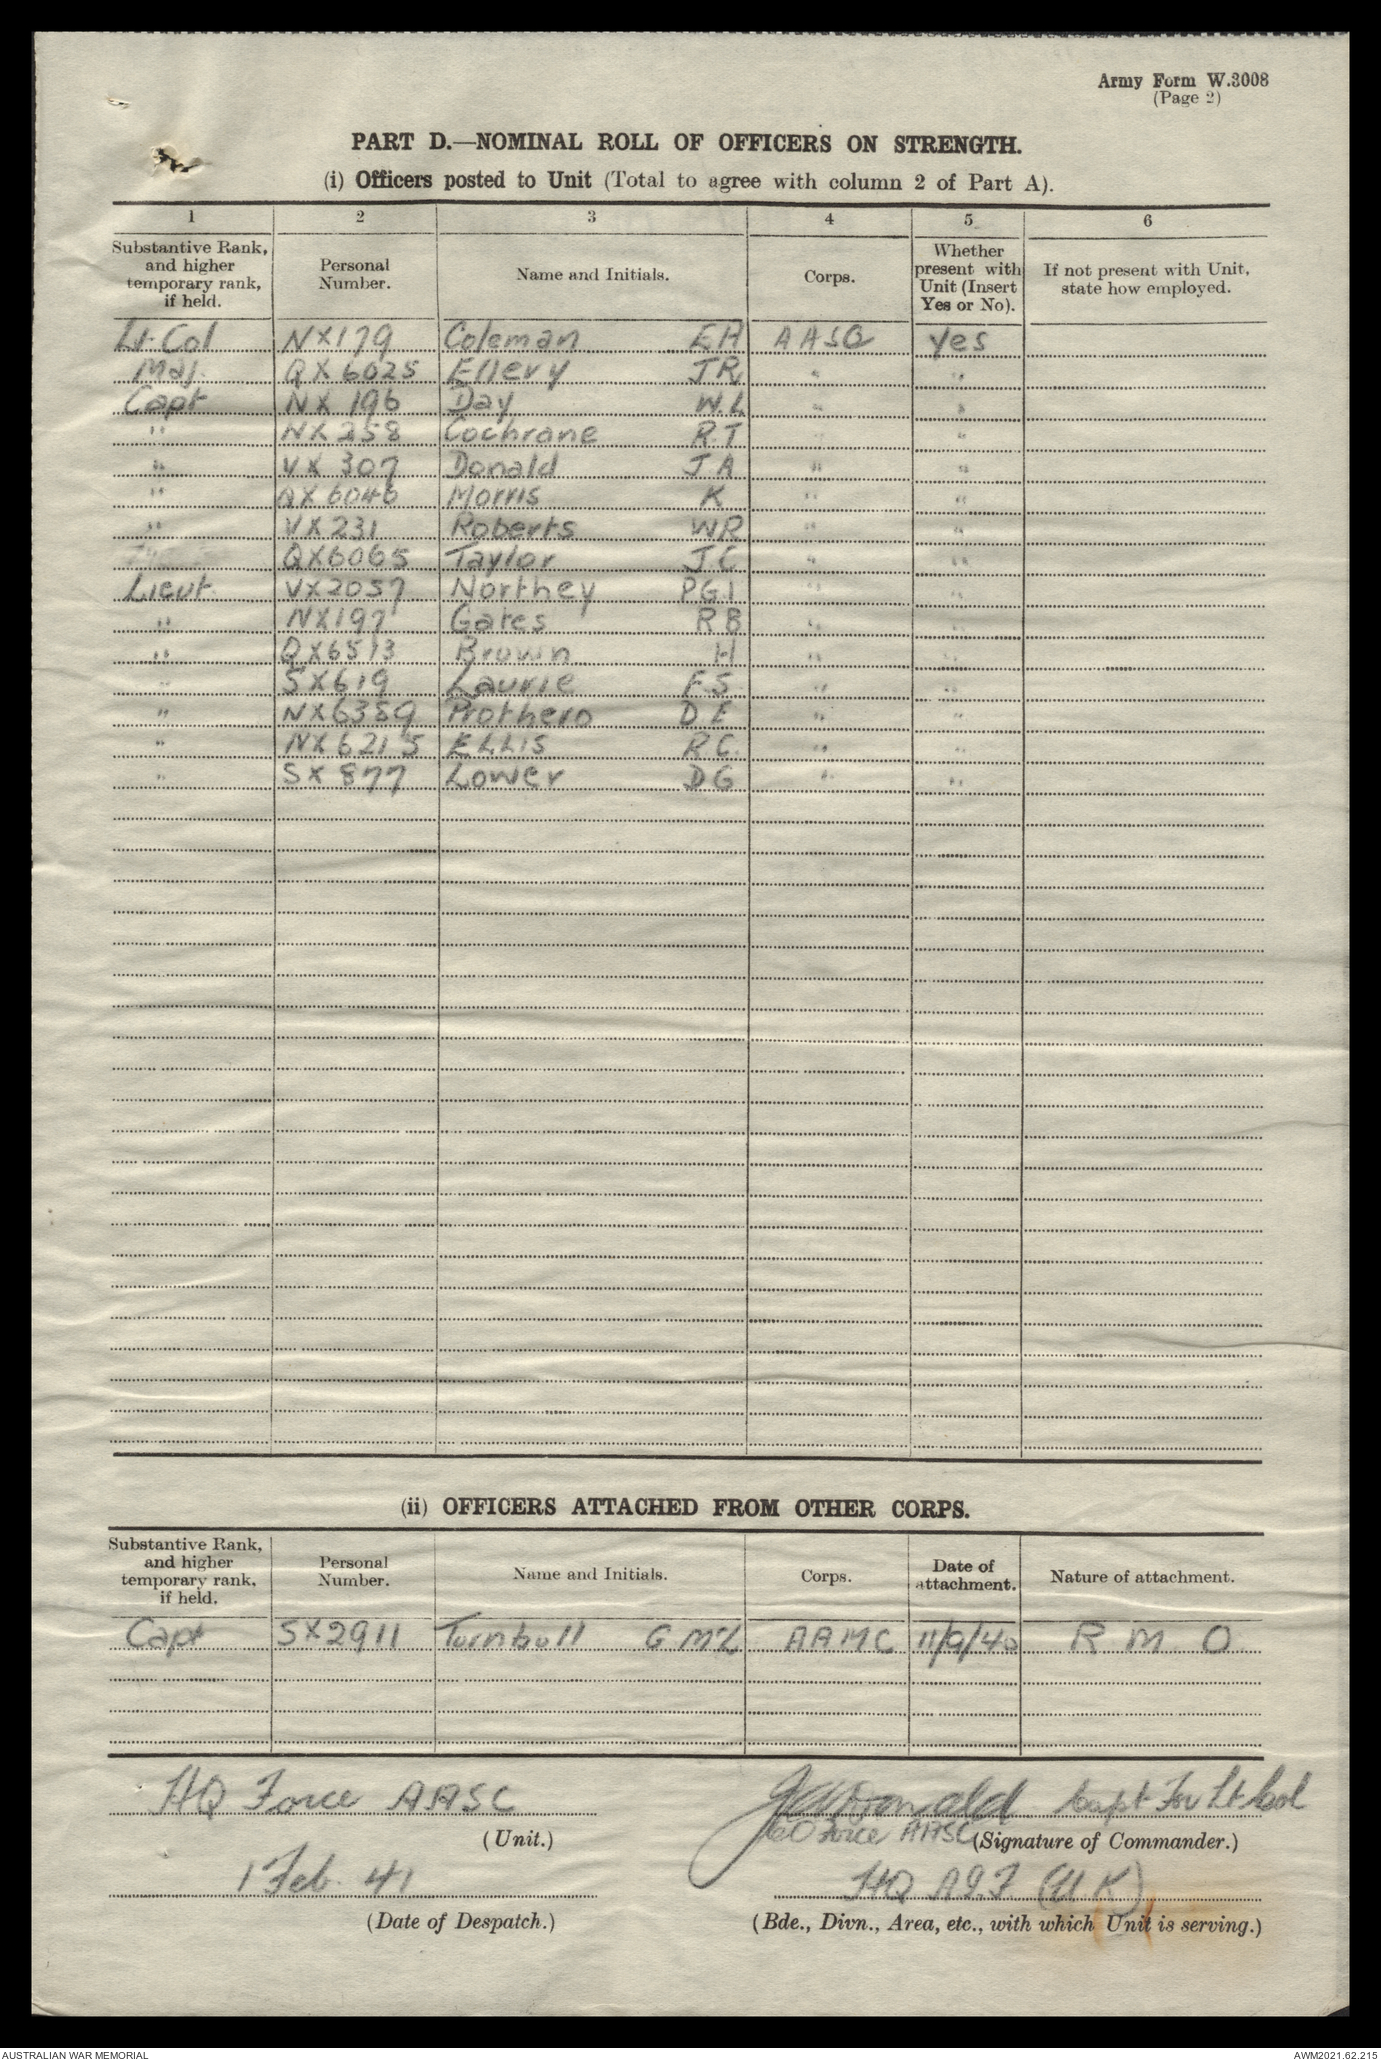 Army Form W.3008
(Page 2)
PART D.—NOMINAL ROLL OF OFFICERS ON STRENGTH.
(i) Officers posted to Unit (Total to agree with column 2 of Part A).
1 2 3 4 5 6
Substantive Rank, and higher temporary rank, if held. Personal Number. Name and Initials. Corps. Whether present with Unit (Insert Yes or No). If not present with Unit, state how employed.
Lt-Col NX179 Coleman EH AASC yes
Maj. QX6025 Ellery JR " "
Capt NX 196 Day W.L " "
" NX 258 Cochrane R.T " "
" VX 307 Donald J A " "
" QX6046 Morris K " "
" VX 231 Roberts WR " "
QX6065 Taylor J.C " "
Lieut VX2057 Northey PGI " "
" NX197 Gates R B " "
" QX6513 Brown H " "
" SX619 Laurie F.S. " "
" NX6359 Prothero D E " "
" NX6215 ELLIS R.C. " "
" SX 877 Lower DG " "
(ii) OFFICERS ATTACHED FROM OTHER CORPS.
Substantive Rank, and higher temporary rank, if held. Personal Number. Name and Initials. Corps. Date of attachment. Nature of attachment.
Capt SX2911 Turnbull G McL AAMC 11/9/40 R M O
HQ Force AASC JA Donald Capt For Lt Col
(Unit.) CO Force AASC (Signature of Commander.)
1 Feb. 41 HQ A.I.F (U.K)
(Date of Despatch.) (Bde., Divn., Area, etc., with which Unit is serving.)
AUSTRALIAN WAR MEMORIAL AWM2021.62.215